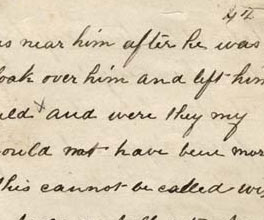 44
as near him after he was
loak over him and left him
uld x and were they my
ould not have been mor
this cannot be called wi